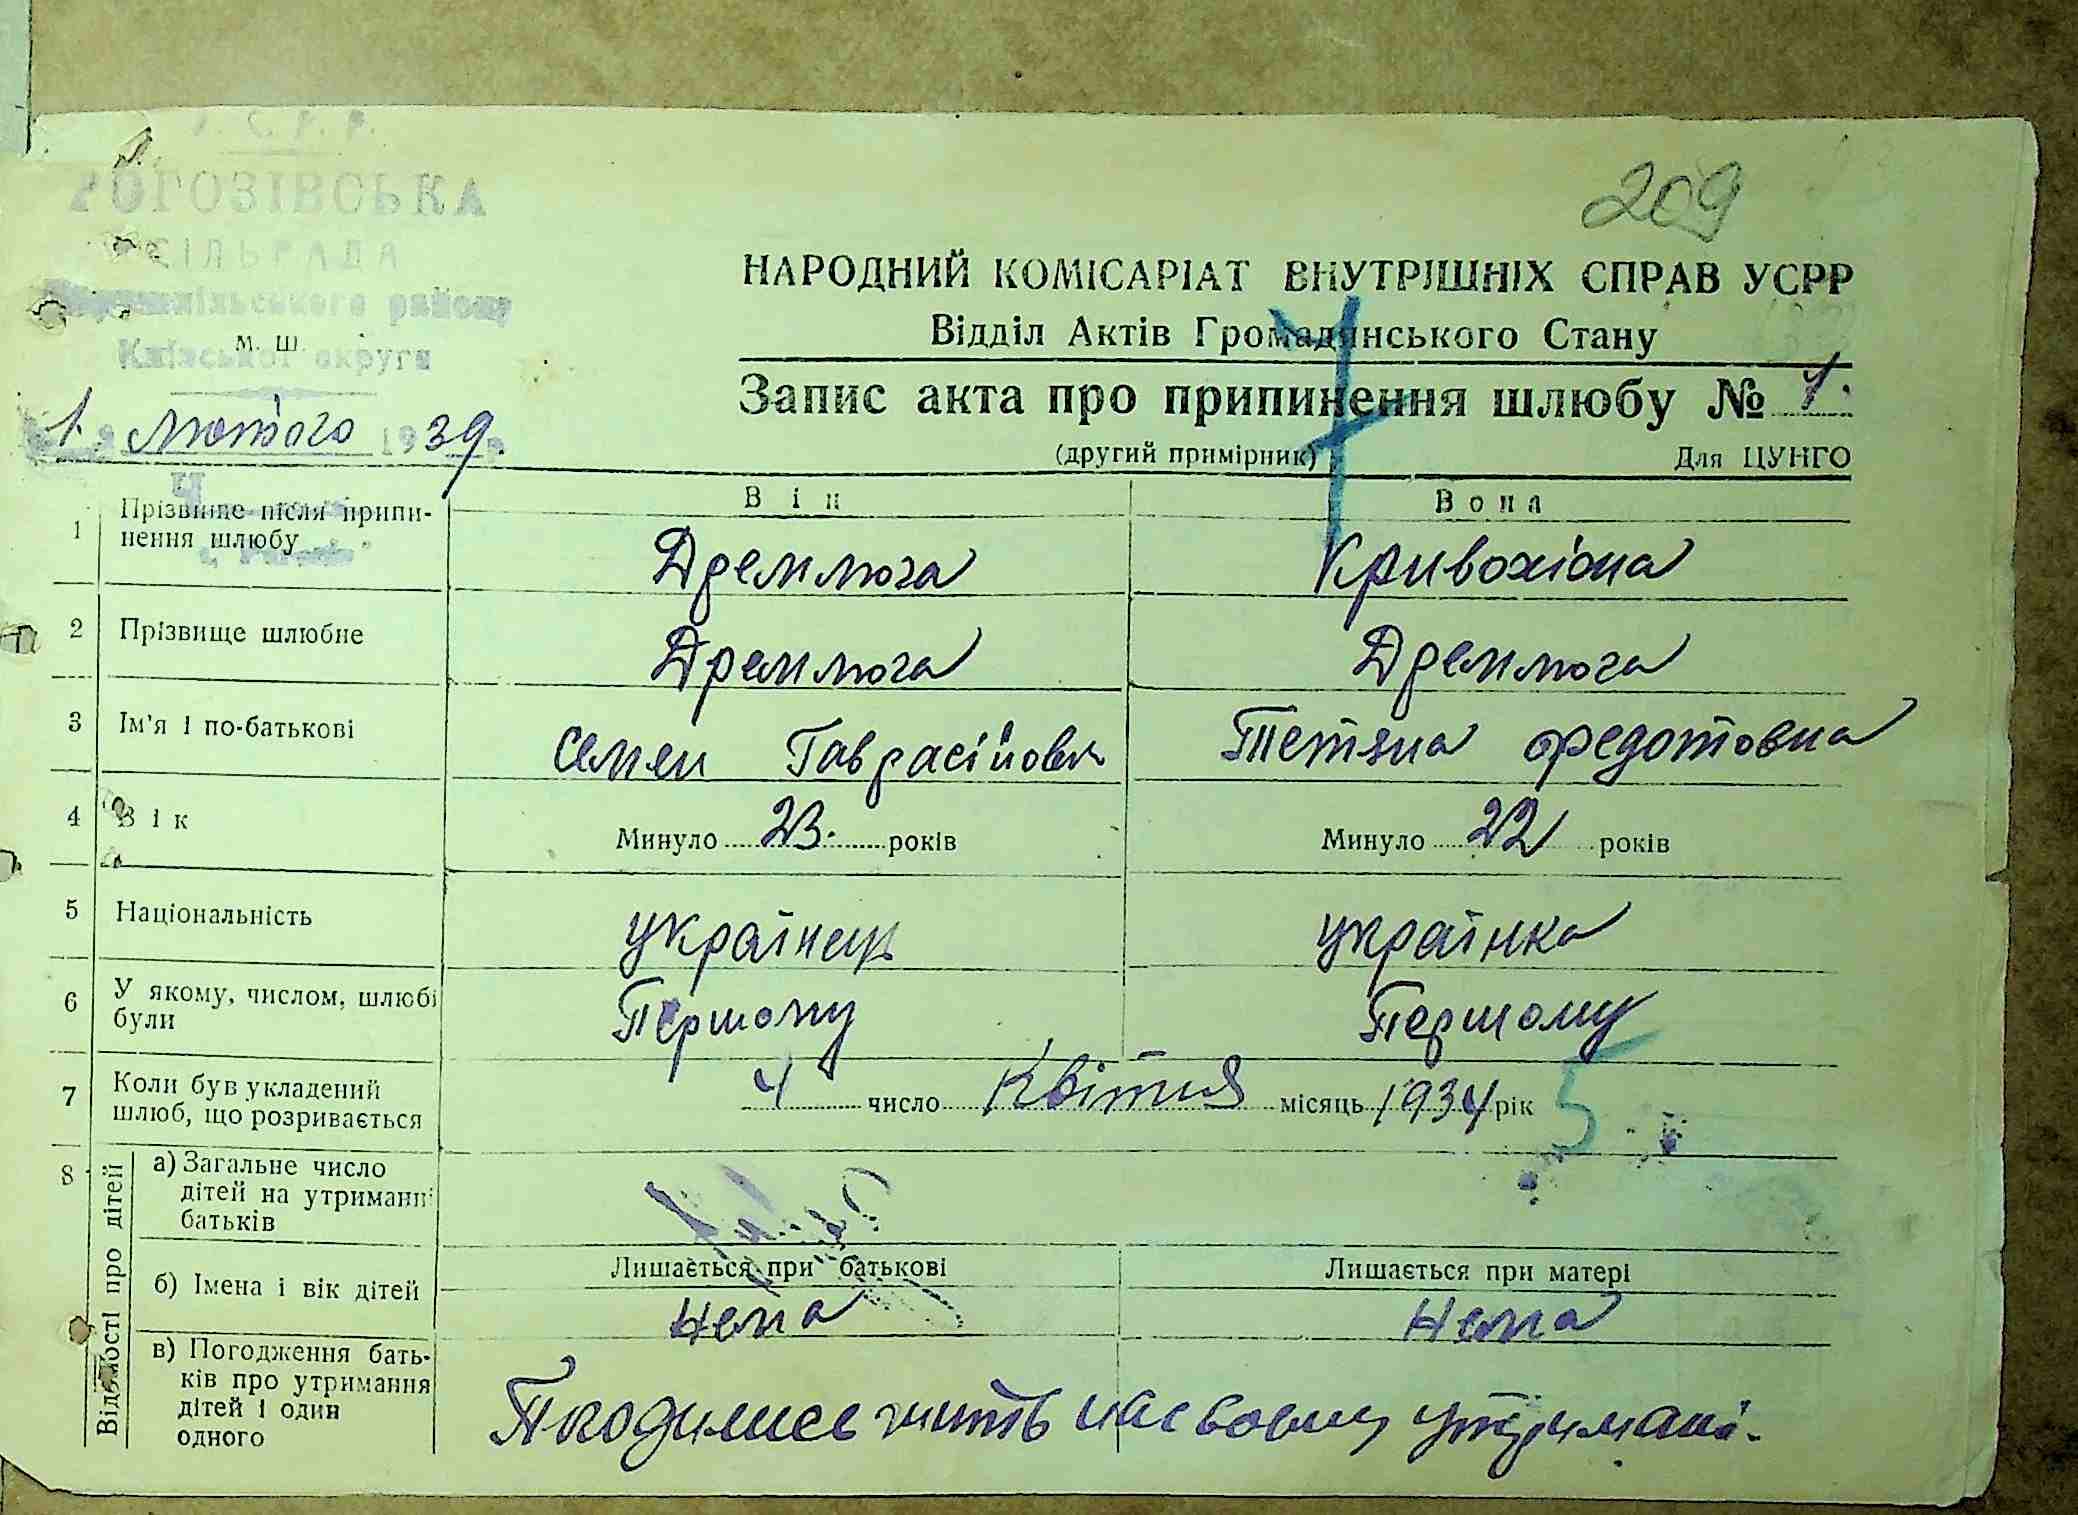 У. С. Р. Р.
РОГОЗІВСЬКА
СІЛЬРАДА
району
Київської округи
М. Ш.
209
НАРОДНИЙ КОМІСАРІАТ ВНУТРІШНІХ СПРАВ УСРР
Відділ Актів Громадянського Стану
Запис акта про припинення шлюбу № 1.
(другий примірник) Для ЦУНГО
1. лютого 1939.
Він Вона
1 Прізвище після припи-
нення шлюбу Дремлюга Кривохіжа
2 Прізвище шлюбне Дремлюга Дремлюга
3 Ім'я і по-батькові Семен Тетяна Федотовна
4 Вік Минуло 23. років Минуло 22 років
5 Національність українець українка
6 У якому, числом, шлюбі
були Першому Першому
7 Коли був укладений
шлюб, що розривається 4 число Квітня місяць 1934 рік
5
8 Відомості про дітей
а) Загальне число
дітей на утриманні
батьків
Лишається при батькові Лишається при матері
б) Імена і вік дітей Нема Нема
в) Погодження бать-
ків про утримання
дітей і один
одного
жить на своему утримані.